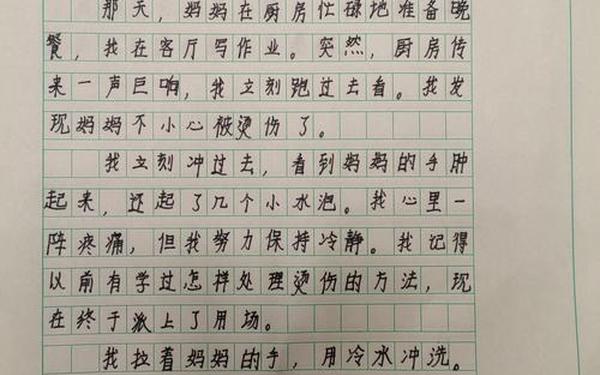 那天，妈妈在厨房忙碌地准备晚
餐，我在客厅写作业。突然，厨房传
来一声巨响，我立刻跑过去看。我发
现妈妈不小心被烫伤了。
我立刻冲过去，看到妈妈的手肿
起来，还起了几个小水泡。我心里一
阵疼痛，但我努力保持冷静。我记得
以前有学过怎样处理烫伤的方法，现
在终于派上了用场。
我拉着妈妈的手，用冷水冲洗。